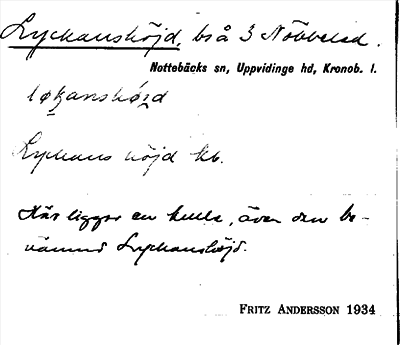 Lyckanshöjd, bs å 3 Nöbbeled.
Nottebäcks sn, Uppvidinge hd, Kronob. l.
Lyckans höjd kb.
Här ligger en kulle, även den be-
nämnd Lyckanshöjd.
FRITZ ANDERSSON 1934